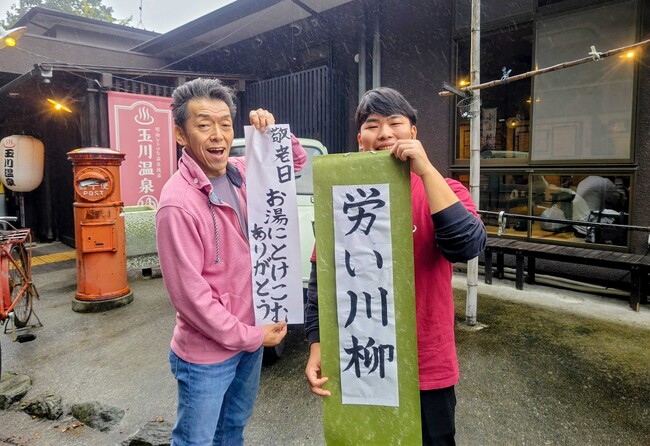 敬老日
お湯にとけこむ
ありがとう
労い川柳
玉川温泉